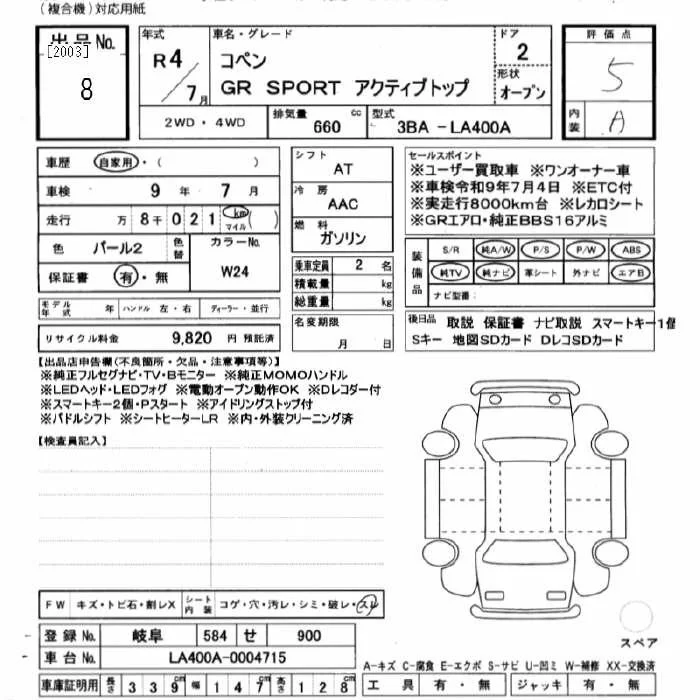 (複合機)対応用紙
出品No.
[2003]
8
年式
R4/7月
車名・グレード
コペン
GR SPORT アクティブトップ
ドア
2
形状
オープン
評価点
5
内装
A
2WD・4WD
排気量 660 cc
型式 3BA -LA400A
車歴 自家用・( )
車検 9年 7月
走行 万8千021 km マイル ( )
色 パール2 色替
カラーNo. W24
保証書 有・無
モデル年式 年 ハンドル 左・右 ディーラー・並行
リサイクル料金 9,820 円 預託済
シフト
AT
冷房
AAC
燃料
ガソリン
乗車定員 2 名
積載量 kg
総重量 kg
名変期限
月 日
セールスポイント
※ユーザー買取車 ※ワンオーナー車
※車検令和9年7月4日 ※ETC付
※実走行8000km台 ※レカロシート
※GRエアロ・純正BBS16アルミ
装備品
S/R 純A/W P/S P/W ABS
純TV 純ナビ 革シート 外ナビ エアB
ナビ型番:
後日品 取説 保証書 ナビ取説 スマートキー1個
Sキー 地図SDカード DレコSDカード
【出品店申告欄(不良箇所・欠品・注意事項等)】
※純正フルセグナビ・TV・Bモニター ※純正MOMOハンドル
※LEDヘッド・LEDフォグ ※電動オープン動作OK ※Dレコダー付
※スマートキー2個・Pスタート ※アイドリングストップ付
※パドルシフト ※シートヒーターLR ※内・外装クリーニング済
【検査員記入】
FW キズ・トビ石・割レX シート内装 コゲ・穴・汚レ・シミ・破レ・スレ
登録No. 岐阜 584 せ 900
車台No. LA400A-0004715
車庫証明用 長さ 339cm 幅 147cm 高さ 128cm
スペア
A-キズ C-腐食 E-エクボ S-サビ U-凹ミ W-補修 XX-交換済
工具 有・無 ジャッキ 有・無